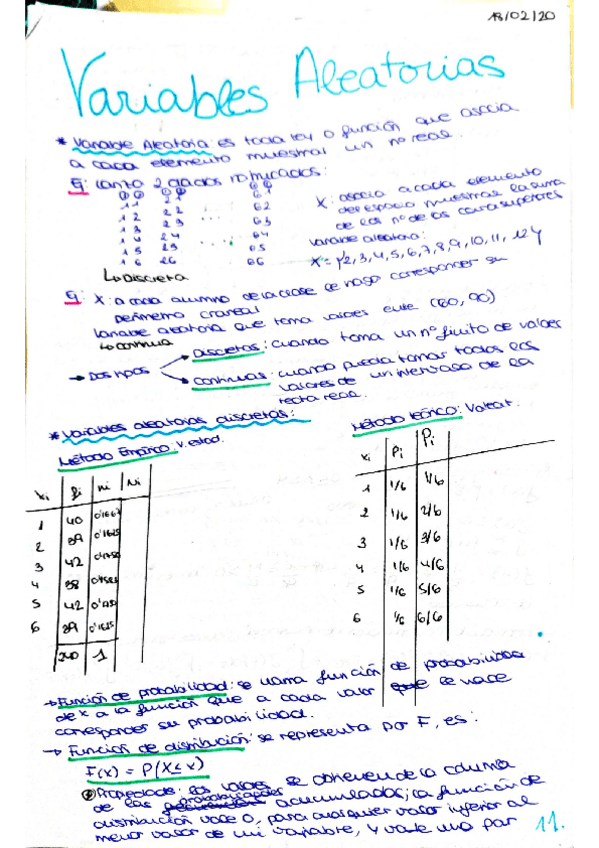 18/02/20
Variables Aleatorias
* Variable Aleatoria: es toda ley o función que asocia
a cada elemento muestral un nº real.
Ej: lanto 2 dados numerados:
1 1 2 1 6 1
1 2 2 2 ... 6 2
1 3 2 3 6 3
1 4 2 4 .... 6 4
1 5 2 5 6 5
1 6 2 6 6 6
X: asocia a cada elemento
del espacio muestral la suma
de los nº de las caras superiores
Variable aleatoria:
X = {2,3,4,5,6,7,8,9,10,11,12}
↳ Discreta
Ej: X: a cada alumno de la clase le hago corresponder su
perímetro craneal
Variable aleatoria que toma valores entre (60, 90)
↳ continua
→ Dos tipos
Discretas: cuando toma un nº finito de valores
Continuas: cuando pueda tomar todos los
valores de un intervalo de la
recta real.
* Variables aleatorias discretas:
Método Empírico: V. estad.
xi fi ni Ni
1 40 0'1667
2 39 0'1625
3 42 0'1750
4 38 0'1583
5 42 0'175
6 39 0'1625
240 1
Método teórico: V. aleat.
xi Pi Pi
1 1/6 1/6
2 1/6 2/6
3 1/6 3/6
4 1/6 4/6
5 1/6 5/6
6 1/6 6/6
→ Función de probabilidad: se llama función de probabilidad
de x a la función que a cada valor le hace
corresponder su probabilidad.
→ Función de distribución: se representa por F, es:
F(x) = P(X ≤ x)
Propiedades: los valores se obtienen de la columna
de las probabilidades acumuladas; la función de
distribución vale 0, para cualquier valor inferior al
menor valor de mi variable, y vale uno par
11.